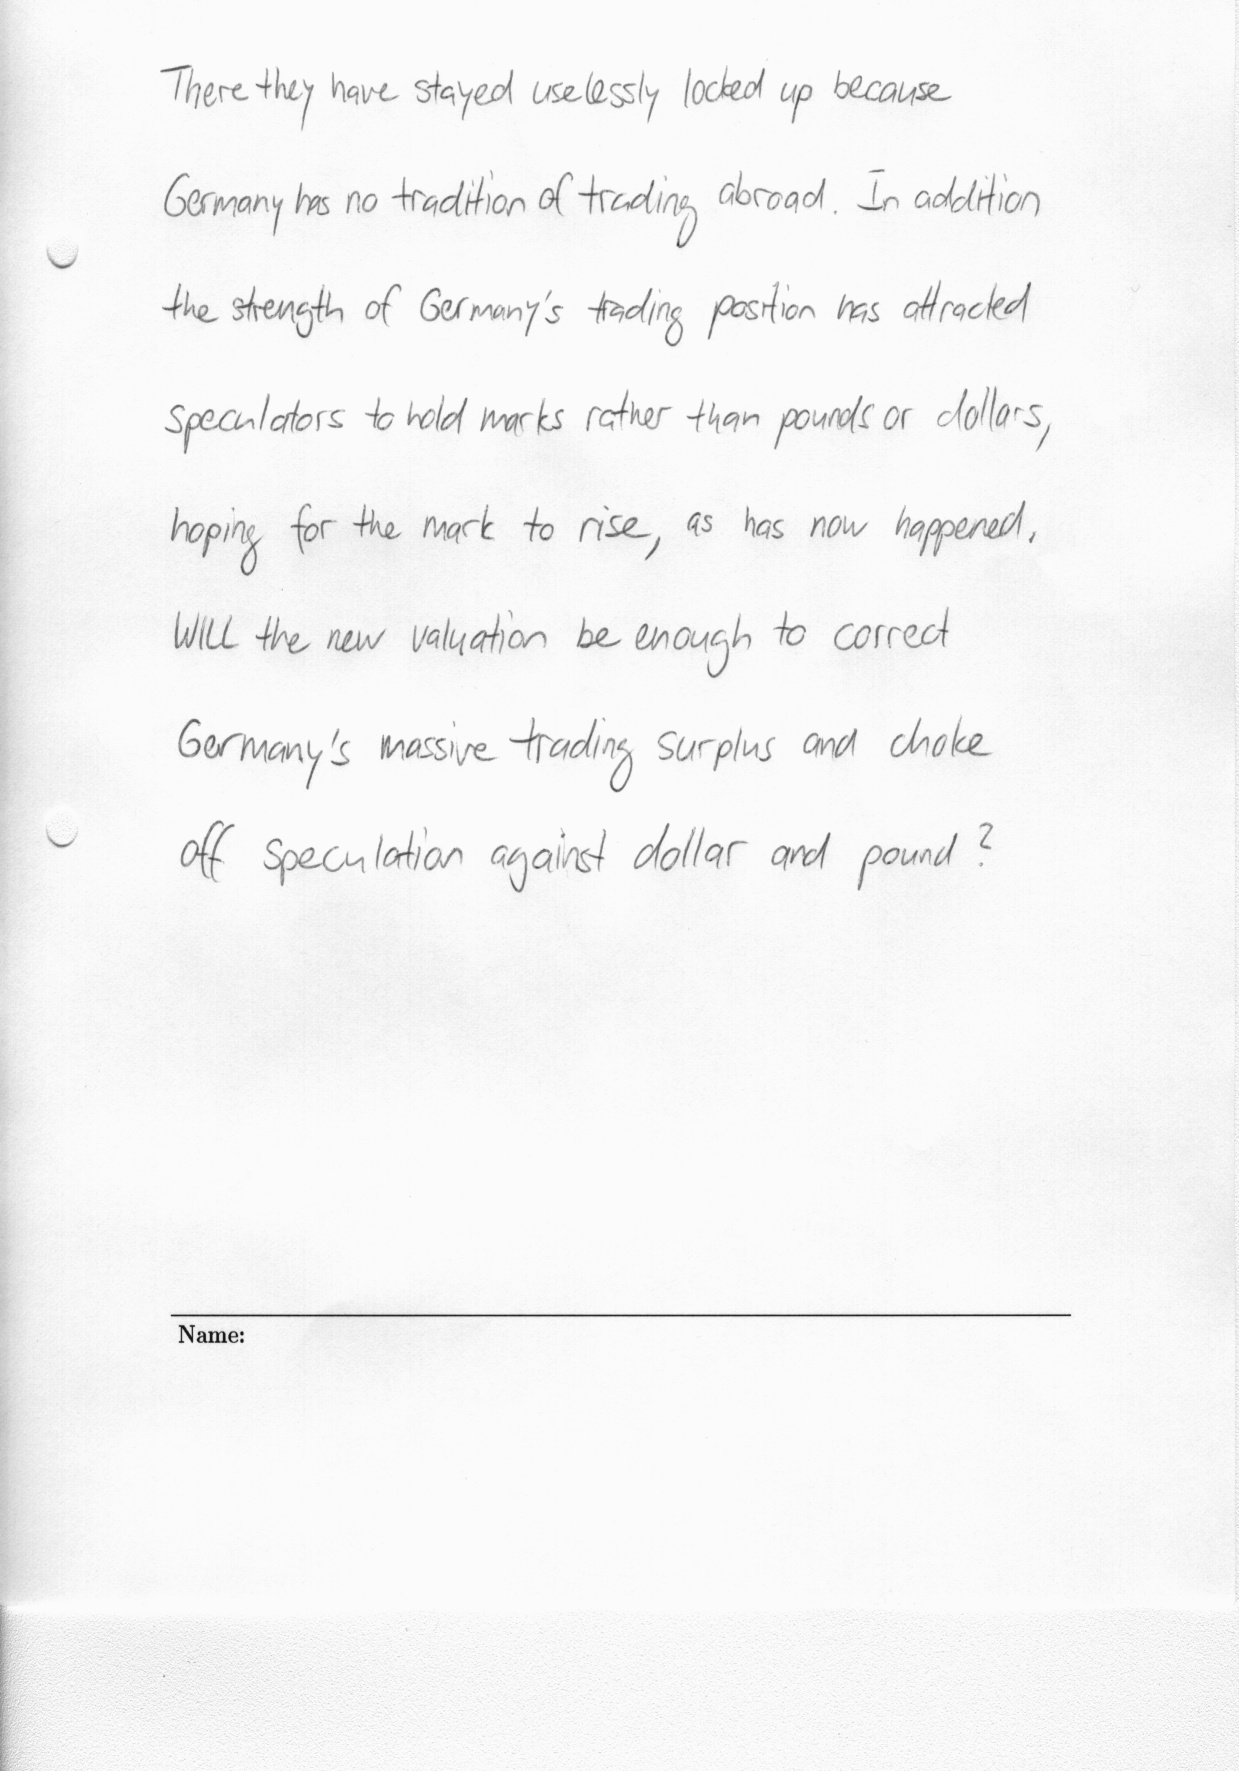 There they have stayed uselessly locked up because
Germany has no tradition of trading abroad. In addition
the strength of Germany's trading position has attracted
speculators to hold marks rather than pounds or dollars,
hoping for the mark to rise, as has now happened.
Will the new valuation be enough to correct
Germany's massive trading surplus and choke
off speculation against dollar and pound?
Name: